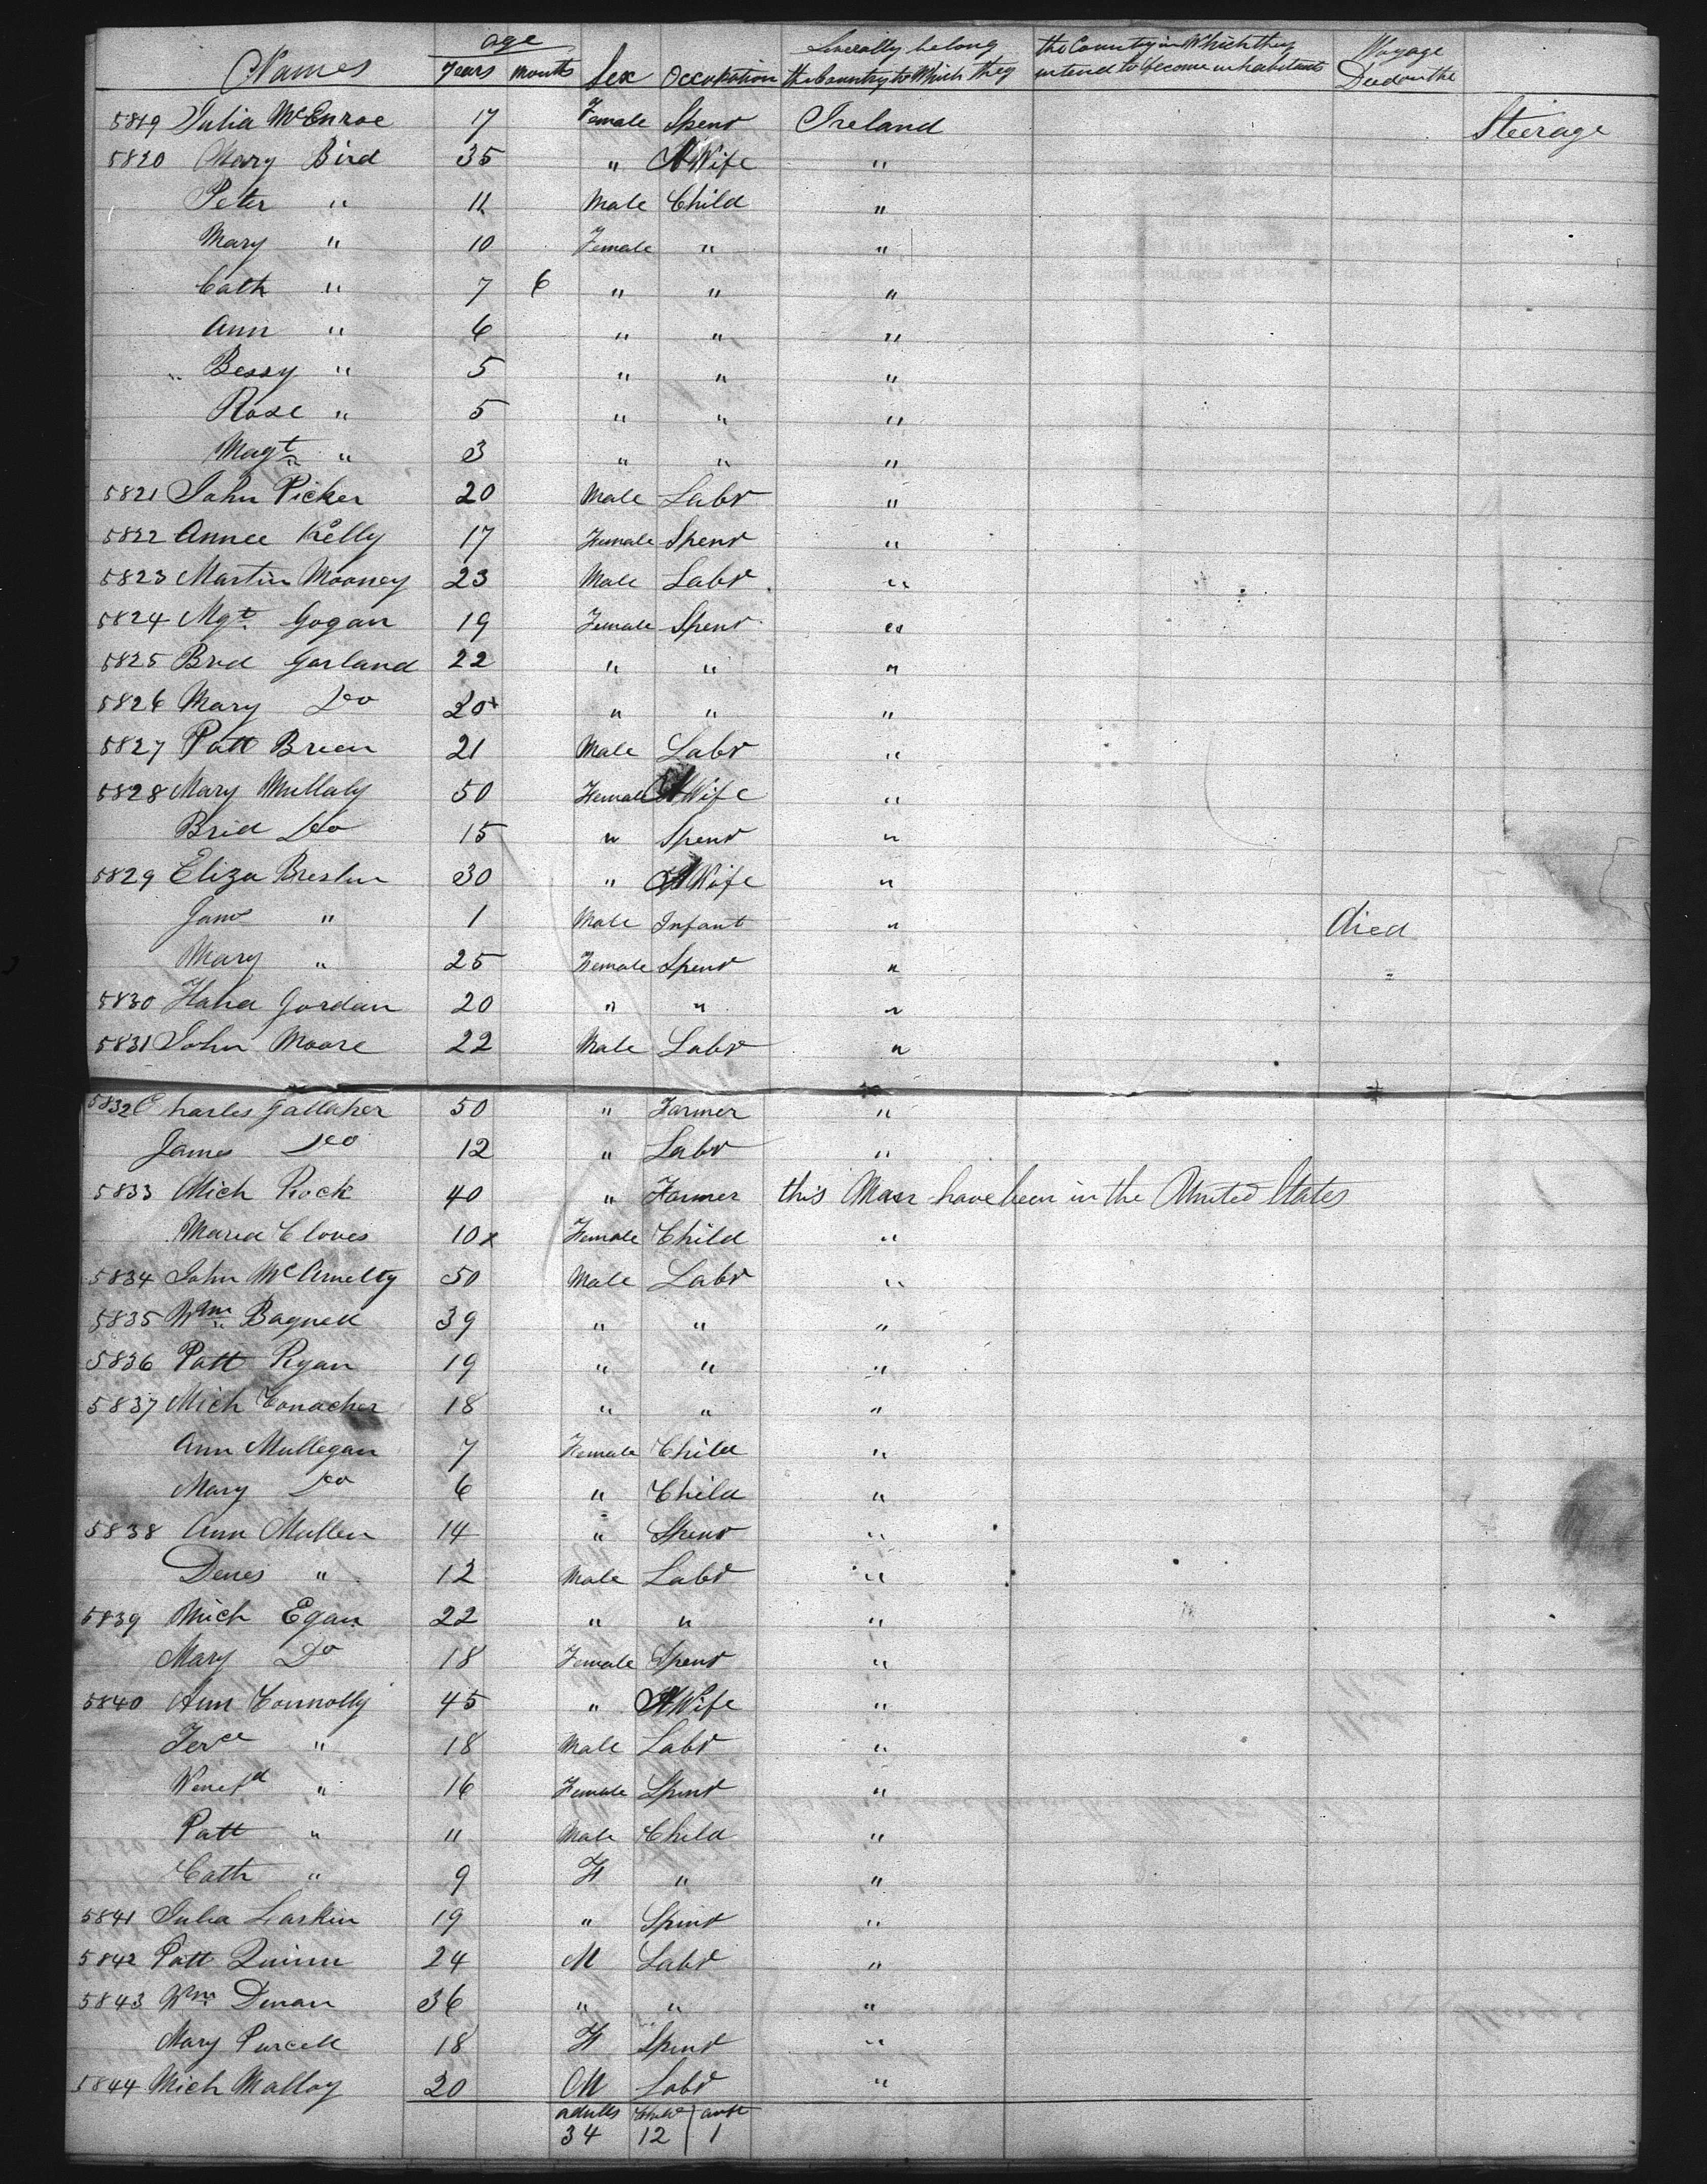 Names age Years months Sex Occupation Severally belong the Country to Which they the Country in Which they intend to become inhabitants Voyage Died on the
5819 Julia McEnroe 17 Female Spenr Ireland Steerage
5820 Mary Bird 35 " Wife "
Peter " 11 Male Child "
Mary " 10 Female " "
Cath " 7 6 " " "
Ann " 6 " " "
Bessy " 5 " " "
Rose " 5 " " "
Magt " 3 " " "
5821 John Picker 20 Male Labr "
5822 Annee Kelly 17 Female Spenr "
5823 Martin Mooney 23 Male Labr "
5824 Mgt. Gogan 19 Female Spenr "
5825 Brd Garland 22 " " "
5826 Mary Do 20 " " "
5827 Patt Breen 21 Male Labr "
5828 Mary Mullaly 50 Female Wife "
Brid Do 15 " Spenr "
5829 Eliza Breslin 30 " Wife "
Jams " 1 Male Infant " died
Mary " 25 Female Spenr "
5830 Hana Jordan 20 " " "
5831 John Moore 22 Male Labr "
5832 Charles Gallaher 50 " Farmer "
James Do 12 " Labr "
5833 Mich Rock 40 " Farmer this Man have been in the United States
Maria Cloves 10 x Female Child "
5834 John McAnelty 50 Male Labr "
5835 Wm Bagnell 39 " " "
5836 Patt Ryan 19 " " "
5837 Mich Conacher 18 " " "
Ann Mullegan 7 Female Child "
Mary Do 6 " Child "
5838 Ann Mullen 14 " Spenr "
Denes " 12 Male Labr "
5839 Mich Egan 22 " " "
Mary Do 18 Female Spenr "
5840 Ann Connolly 45 " Wife "
Terce " 18 Male Labr "
Wenefd " 16 Female Spinr "
Patt " 11 Male Child "
Cath " 9 F " "
5841 Julia Larkin 19 " Spinr "
5842 Patt Quinn 24 M Labr "
5843 Wm. Dinan 36 " " "
Mary Purcell 18 F Spinr "
5844 Mich Malloy 20 M Labr "
adults Child
34 12 1